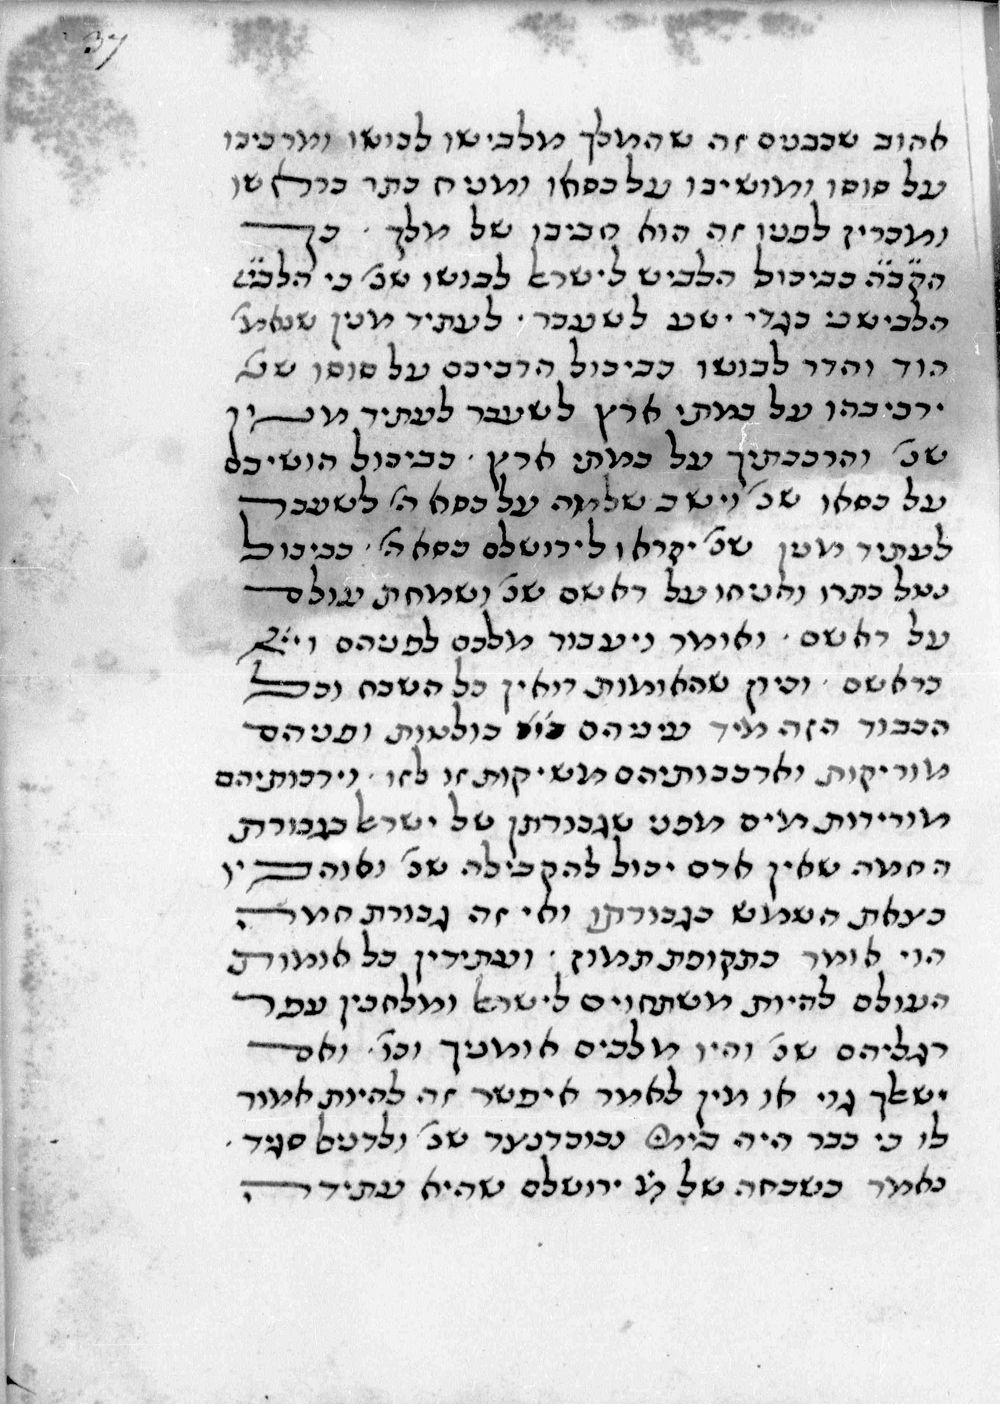 37
אהוב שבבנים זה שהמלך מלבישו לבושו ומרכיבו
על סוסו ומושיבו על כסאו ומניח כתר בראשו
ומכריז לפניו זה הוא חביבו של מלך · כך
הקב״ה כביכול הלביש לישראל לבושו שנ׳ כי הלב׳
הלבישני בגדי ישע לשעבר · לעתיד מנין שנאמ׳
הוד והדר לבושו כביכול הרכיבם על סוסו שנ׳
ירכיבהו על במתי ארץ לשעבר לעתיד מנין
שנ׳ והרכבתיך על במתי ארץ · כביכול הושיבם
על כסאו שנ׳ וישב שלמה על כסא ה׳ לשעבר
לעתיד מנין שנ׳ יקראו לירושלם כסא ה׳ · כביכול
נטל כתרו והניחו על ראשם שנ׳ ושמחת עולם
על ראשם · ואומר ויעבור מלכם לפניהם ויי׳
בראשם · וכיון שהאומות רואין כל השבח וכל
הכבוד הזה מיד עיניהם בולטות ופניהם
מוריקות וארכבותיהם משיקות זו לזו · וירכותיהם
מורידות מים מפני שגבורתן של ישראל כגבורת
החמה שאין אדם יכול להקבילה שנ׳ ואוהביו
כצאת השמש בגבורתו ואי זה גבורת חמה
הוי אומר בתקופת תמוז · ועתידין כל אומות
העולם להיות משתחוים לישראל ומלחכין עפר
רגליהם שנ׳ והיו מלכים אומניך וכו׳ · ואם
ישאלך גוי או מין לאמר איפשר זה להיות אמור
לו כי כבר היה בימי נבוכדנצר שנ׳ ולדניאל סגיד ·
נאמר בשבחה של ירושלם שהיא עתידה